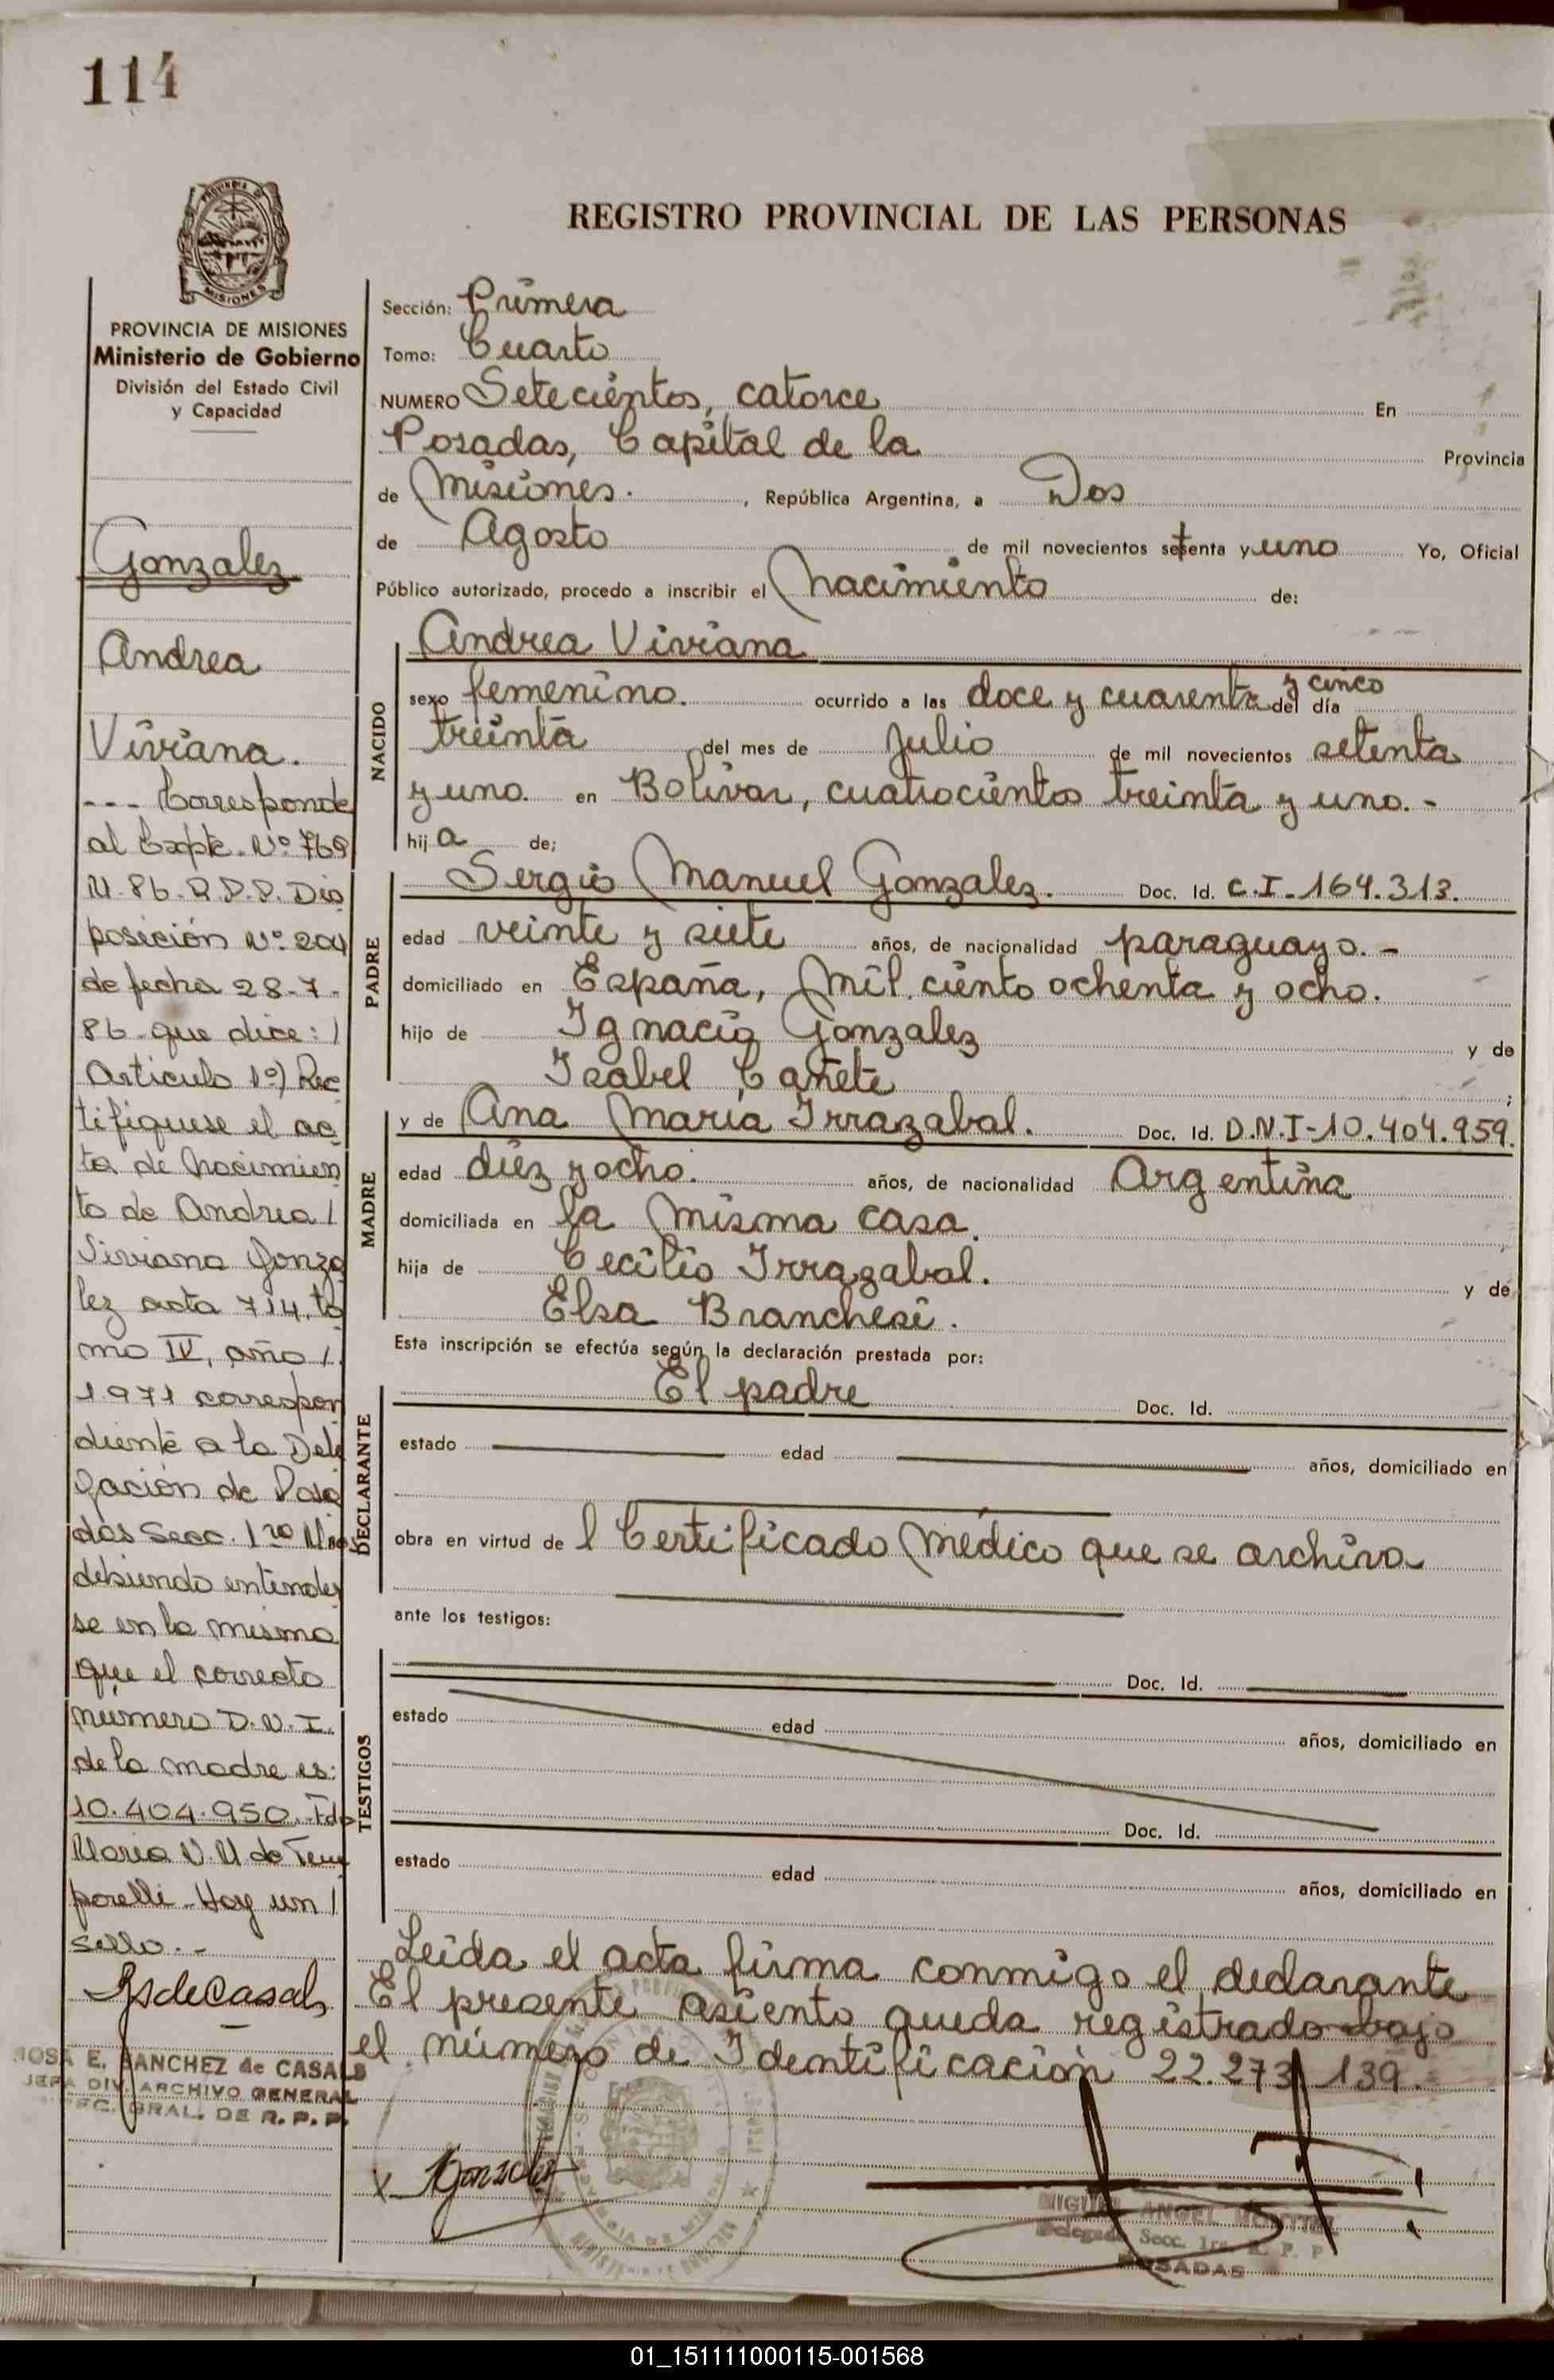 114
PROVINCIA DE MISIONES
REGISTRO PROVINCIAL DE LAS PERSONAS
PROVINCIA DE MISIONES
Ministerio de Gobierno
División del Estado Civil
y Capacidad
Gonzalez
Andrea
Viviana.
--- Corresponde
al Expte. Nº 769
M. 86. R.P.P. Dis
posición Nº 204
de fecha 28-7-
86 que dice: /
Articulo 1º) Rec
tifiquese el ac
ta de Nacimien
to de Andrea /
Viviana Gonza
lez acta 714. to
mo IV, año /.
1.971 correspon
diente a la Dele
gación de Posa
das Secc. 1ra Mnes
debiendo entender
se en la misma
que el correcto
número D.N.I.
de la madre es:
10.404.950. Fdo
Maria N. M de Tem
porelli. Hay un /
sello. -
RSdeCasals
ROSA E. SANCHEZ de CASALS
JEFA DIV. ARCHIVO GENERAL
DIREC. GRAL. DE R. P. P.
Sección: Primera
Tomo: Cuarto
NUMERO Setecientos, catorce En
Posadas, Capital de la Provincia
de Misiones. , República Argentina, a Dos
de Agosto de mil novecientos setenta y uno Yo, Oficial
Público autorizado, procedo a inscribir el Nacimiento de:
NACIDO
Andrea Viviana
sexo femenino. ocurrido a las doce y cuarenta y cinco del día
treinta del mes de Julio de mil novecientos setenta
y uno. en Bolivar, cuatrocientos treinta y uno. -
hija de;
PADRE
Sergio Manuel Gonzalez. Doc. Id. C.I-164.313.
edad veinte y siete años, de nacionalidad paraguayo. -
domiciliado en España, mil ciento ochenta y ocho.
hijo de Ignacio Gonzalez y de
Isabel Cañete ;
MADRE
y de Ana Maria Irrazabal. Doc. Id. D.N.I-10.404.959.
edad diez y ocho. años, de nacionalidad Argentina
domiciliada en la misma casa.
hija de Cecilio Irrazabal. y de
Elsa Branchesi.
Esta inscripción se efectúa según la declaración prestada por:
DECLARANTE
El padre Doc. Id.
estado edad años, domiciliado en
obra en virtud de l Certificado Médico que se archiva
ante los testigos:
TESTIGOS
Doc. Id.
estado edad años, domiciliado en
Doc. Id.
estado edad años, domiciliado en
Leida el acta firma conmigo el declarante
El presente asiento queda registrado bajo
el número de Identificación 22.273.139.
x Gonzalez
MIGUEL ANGEL
Delegado Secc. 1ra. R. P. P
POSADAS
01_151111000115-001568